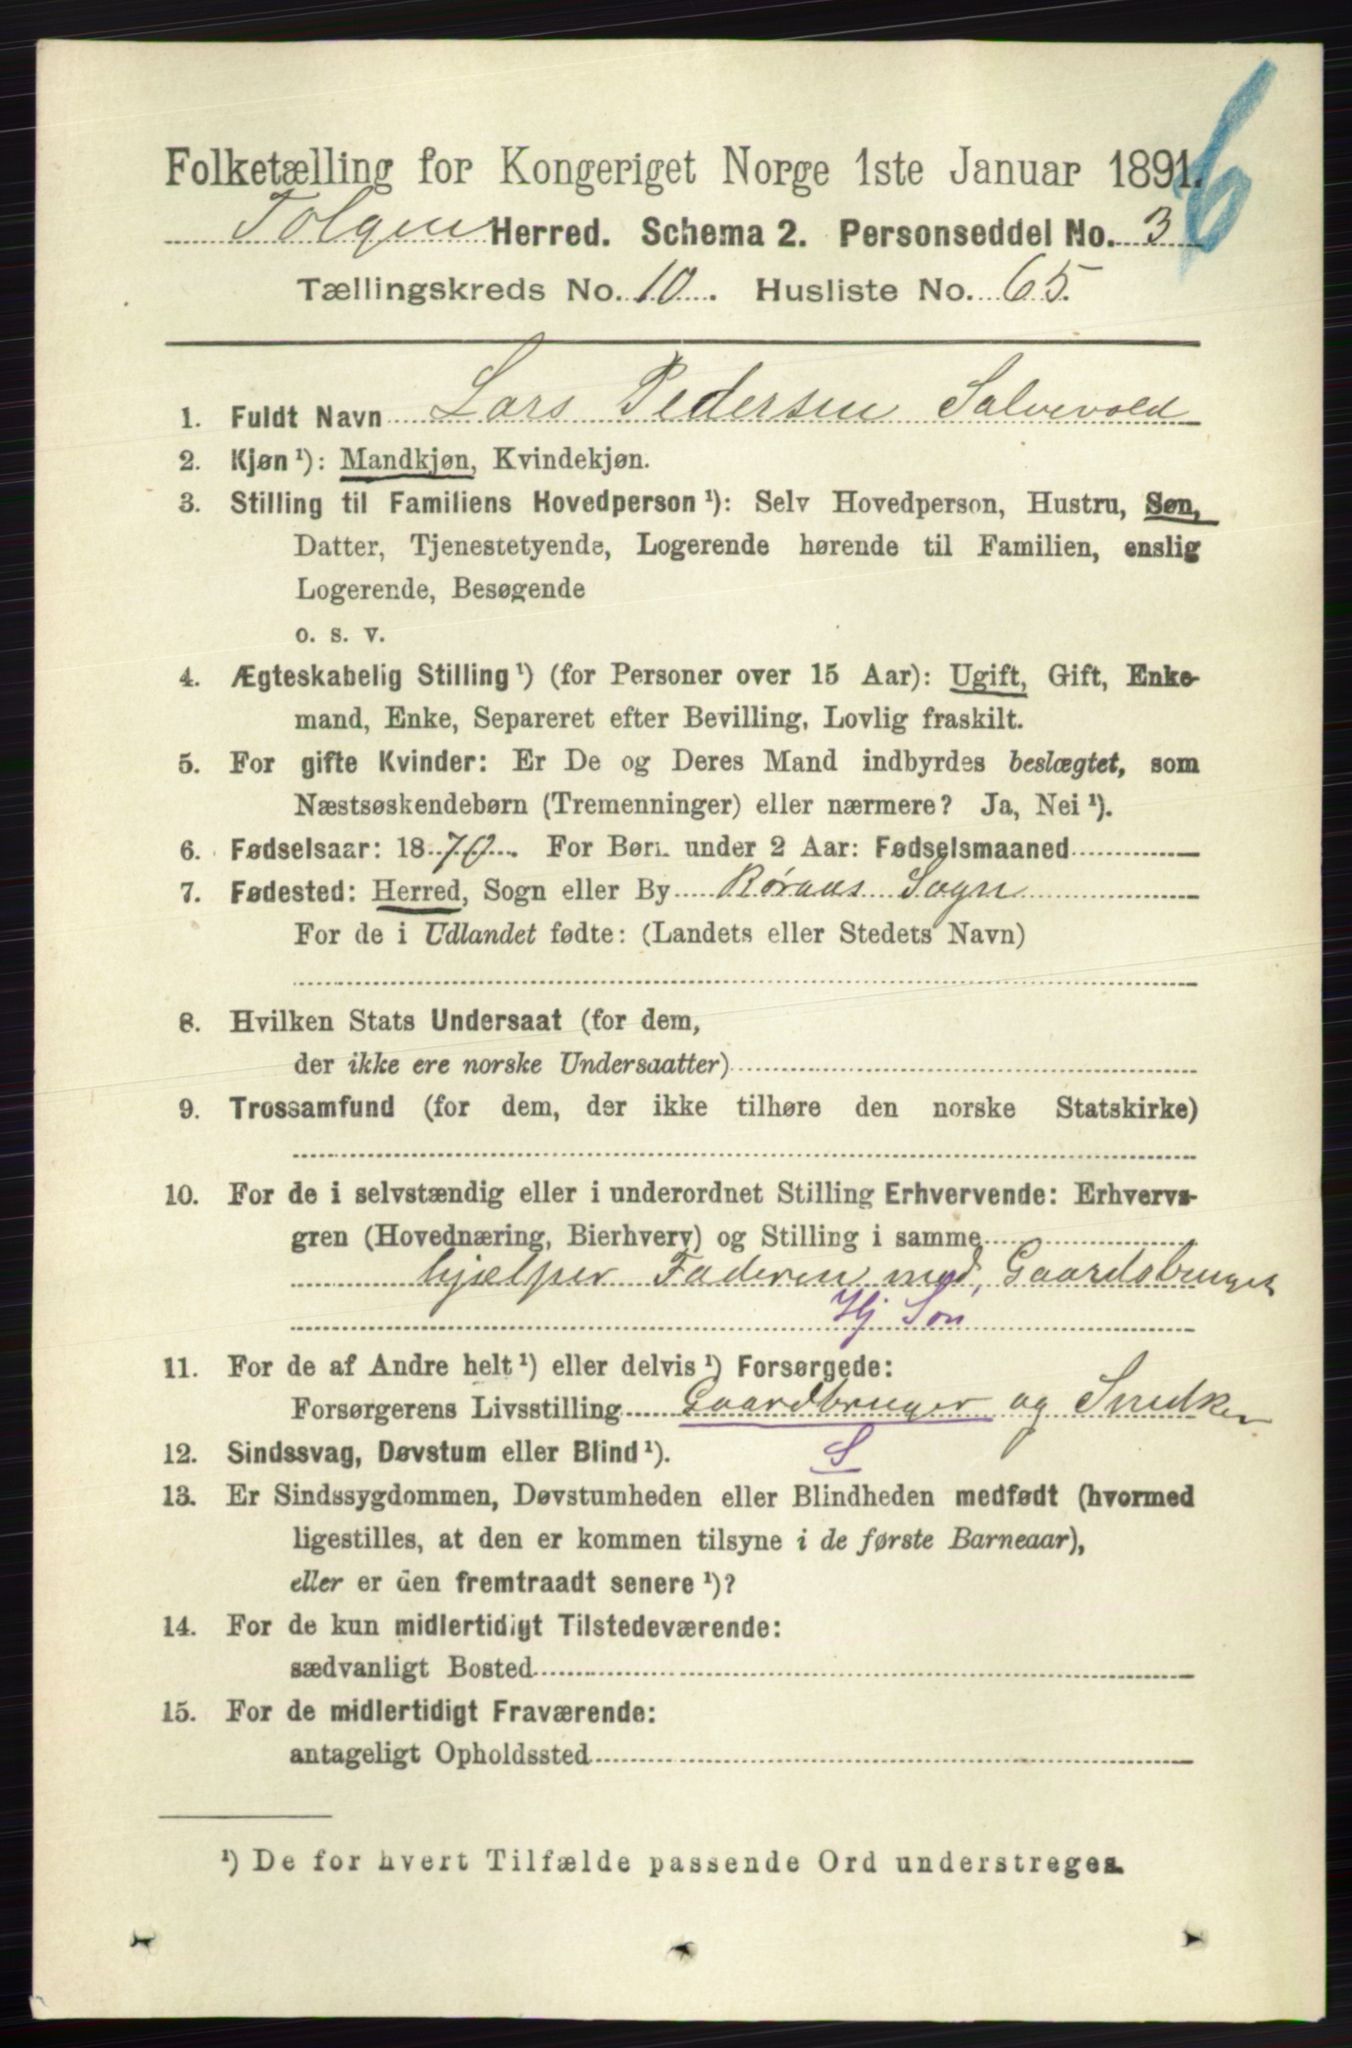 6
Folketælling for Kongeriget Norge 1ste Januar 1891.
Tolgen Herred. Schema 2. Personseddel No. 3
Tællingskreds No. 10. Husliste No. 65.
1. Fuldt Navn Lars Pedersen Salvevold
2. Kjøn ¹): Mandkjøn, Kvindekjøn.
3. Stilling til Familiens Hovedperson ¹): Selv Hovedperson, Hustru, Søn,
Datter, Tjenestetyende, Logerende hørende til Familien, enslig
Logerende, Besøgende
o. s. v.
4. Ægteskabelig Stilling ¹) (for Personer over 15 Aar): Ugift, Gift, Enke-
mand, Enke, Separeret efter Bevilling, Lovlig fraskilt.
5. For gifte Kvinder: Er De og Deres Mand indbyrdes beslægtet, som
Næstsøskendebørn (Tremenninger) eller nærmere? Ja, Nei ¹).
6. Fødselsaar: 1870. For Børn under 2 Aar: Fødselsmaaned
7. Fødested: Herred, Sogn eller By Røraas Sogn
For de i Udlandet fødte: (Landets eller Stedets Navn)
8. Hvilken Stats Undersaat (for dem,
der ikke ere norske Undersaatter)
9. Trossamfund (for dem, der ikke tilhøre den norske Statskirke)
10. For de i selvstændig eller i underordnet Stilling Erhvervende: Erhvervs-
gren (Hovednæring, Bierhverv) og Stilling i samme
hjælper Faderen med Gaardsbruget
Hj Søn
11. For de af Andre helt ¹) eller delvis ¹) Forsørgede:
Forsørgerens Livsstilling Gaardbruger og Snedker
12. Sindssvag, Døvstum eller Blind ¹). S
13. Er Sindssygdommen, Døvstumheden eller Blindheden medfødt (hvormed
ligestilles, at den er kommen tilsyne i de første Barneaar),
eller er den fremtraadt senere ¹)?
14. For de kun midlertidigt Tilstedeværende:
sædvanligt Bosted
15. For de midlertidigt Fraværende:
antageligt Opholdssted
¹) De for hvert Tilfælde passende Ord understreges.